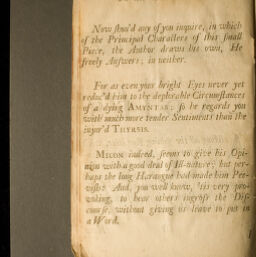 Now shou'd any of you inquire, in which
of the Principal Characters of this small
Piece, the Author draws his own, He
freely Answers; in neither.
For as even your bright Eyes never yet
reduc'd him to the deplorable Circumstances
of a dying AMYNTAS; so he regards you
with much more tender Sentiments than the
injur'd THYRSIS.
MICON indeed, seems to give his Opi-
nion with a good deal of Ill-nature; but per-
haps the long Harangue had made him Pee-
vish: And, you well know, 'tis very pro-
voking, to hear others ingross the Dis-
course, without giving us leave to put in
a Word.